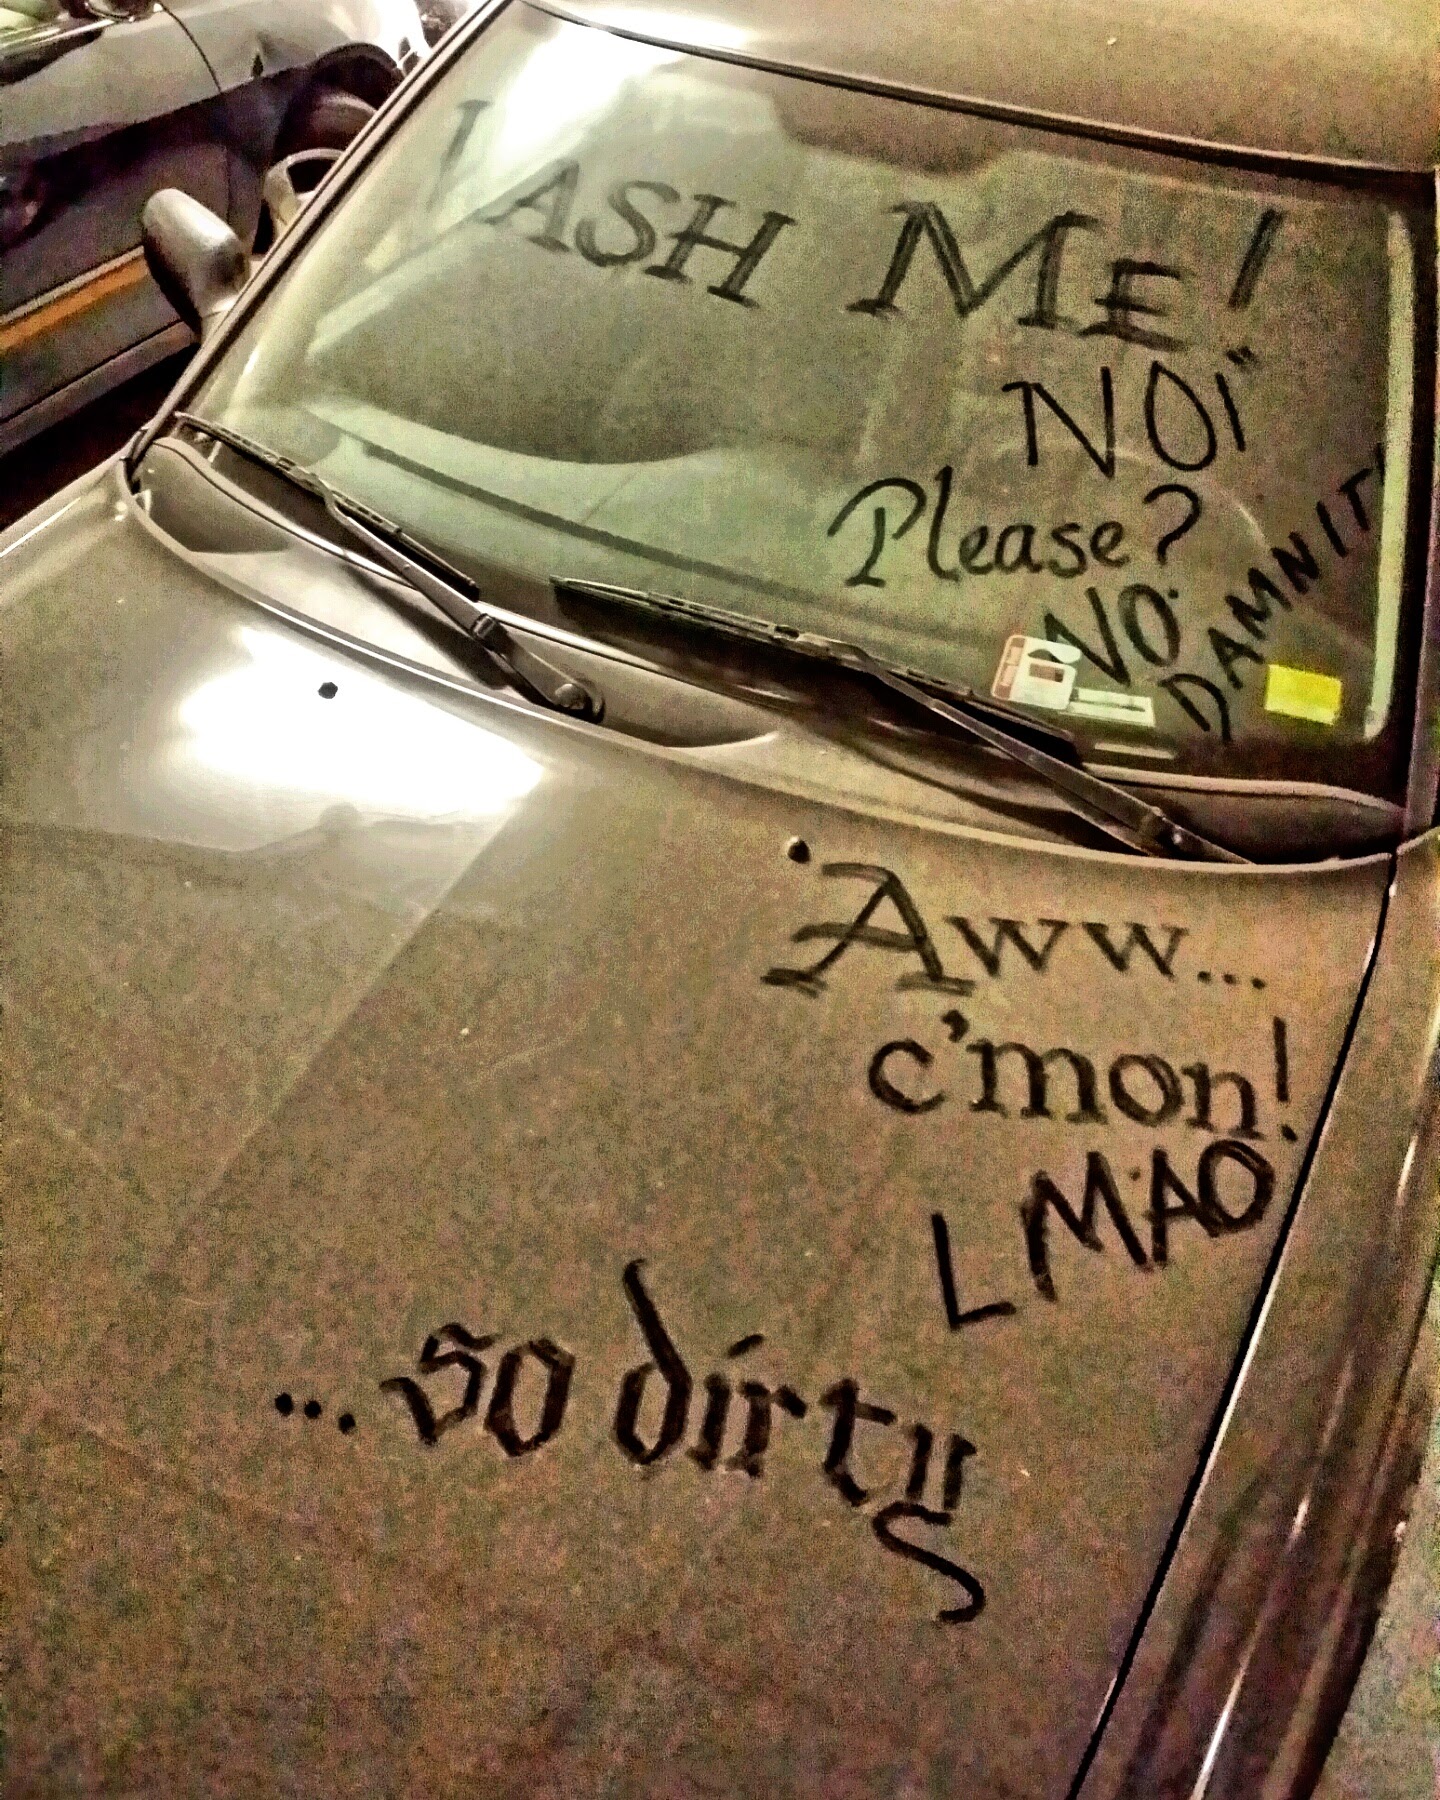 WASH ME!
NO!"
Please?
NO.
DAMNIT!
Aww...
c'mon!
LMAO
...so dirty